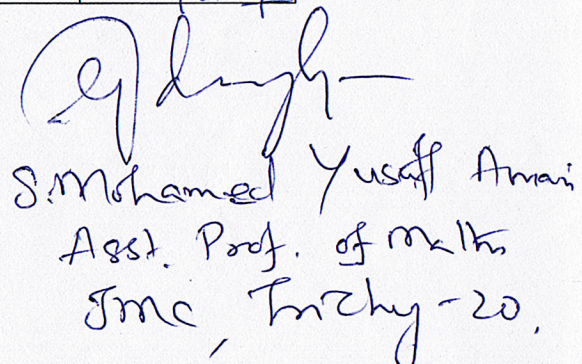 S. Mohamed Yusuff Ansari
Asst. Prof. of Maths
JMC, Trichy-20.